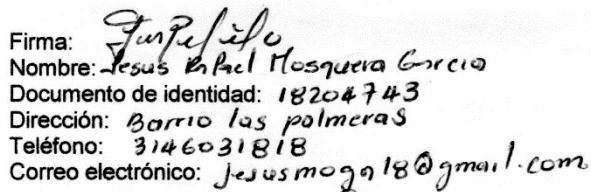 Firma:
Nombre: Jesus Rafael Mosquera Garcia
Documento de identidad: 18204743
Dirección: Barrio las palmeras
Teléfono: 3146031818
Correo electrónico: jesusmoga18@gmail.com